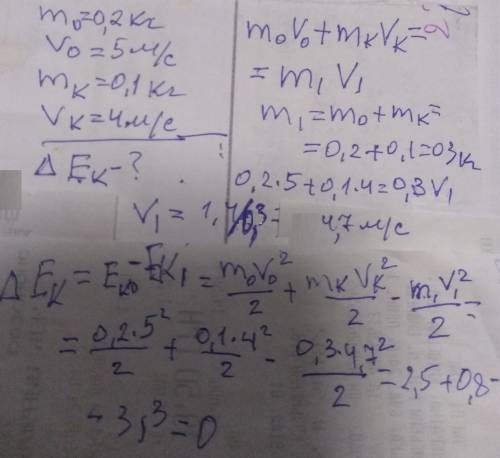 m₀=0,2кг
V₀=5м/с
mк=0,1кг
Vк=4м/с
ΔEк-?
m₀V₀+mкVк=
=m₁V₁
m₁=m₀+mк=
=0,2+0,1=03кг
0,2·5+0,1·4=0,3V₁
V₁=1,4/0,3=4,7м/с
ΔEк=Eк₀-Eк₁=m₀V₀²/2+mкVк²/2-m₁V₁²/2=
=0,2·5²/2+0,1·4²/2-0,3·4,7²/2=2,5+0,8-
-3,3=0